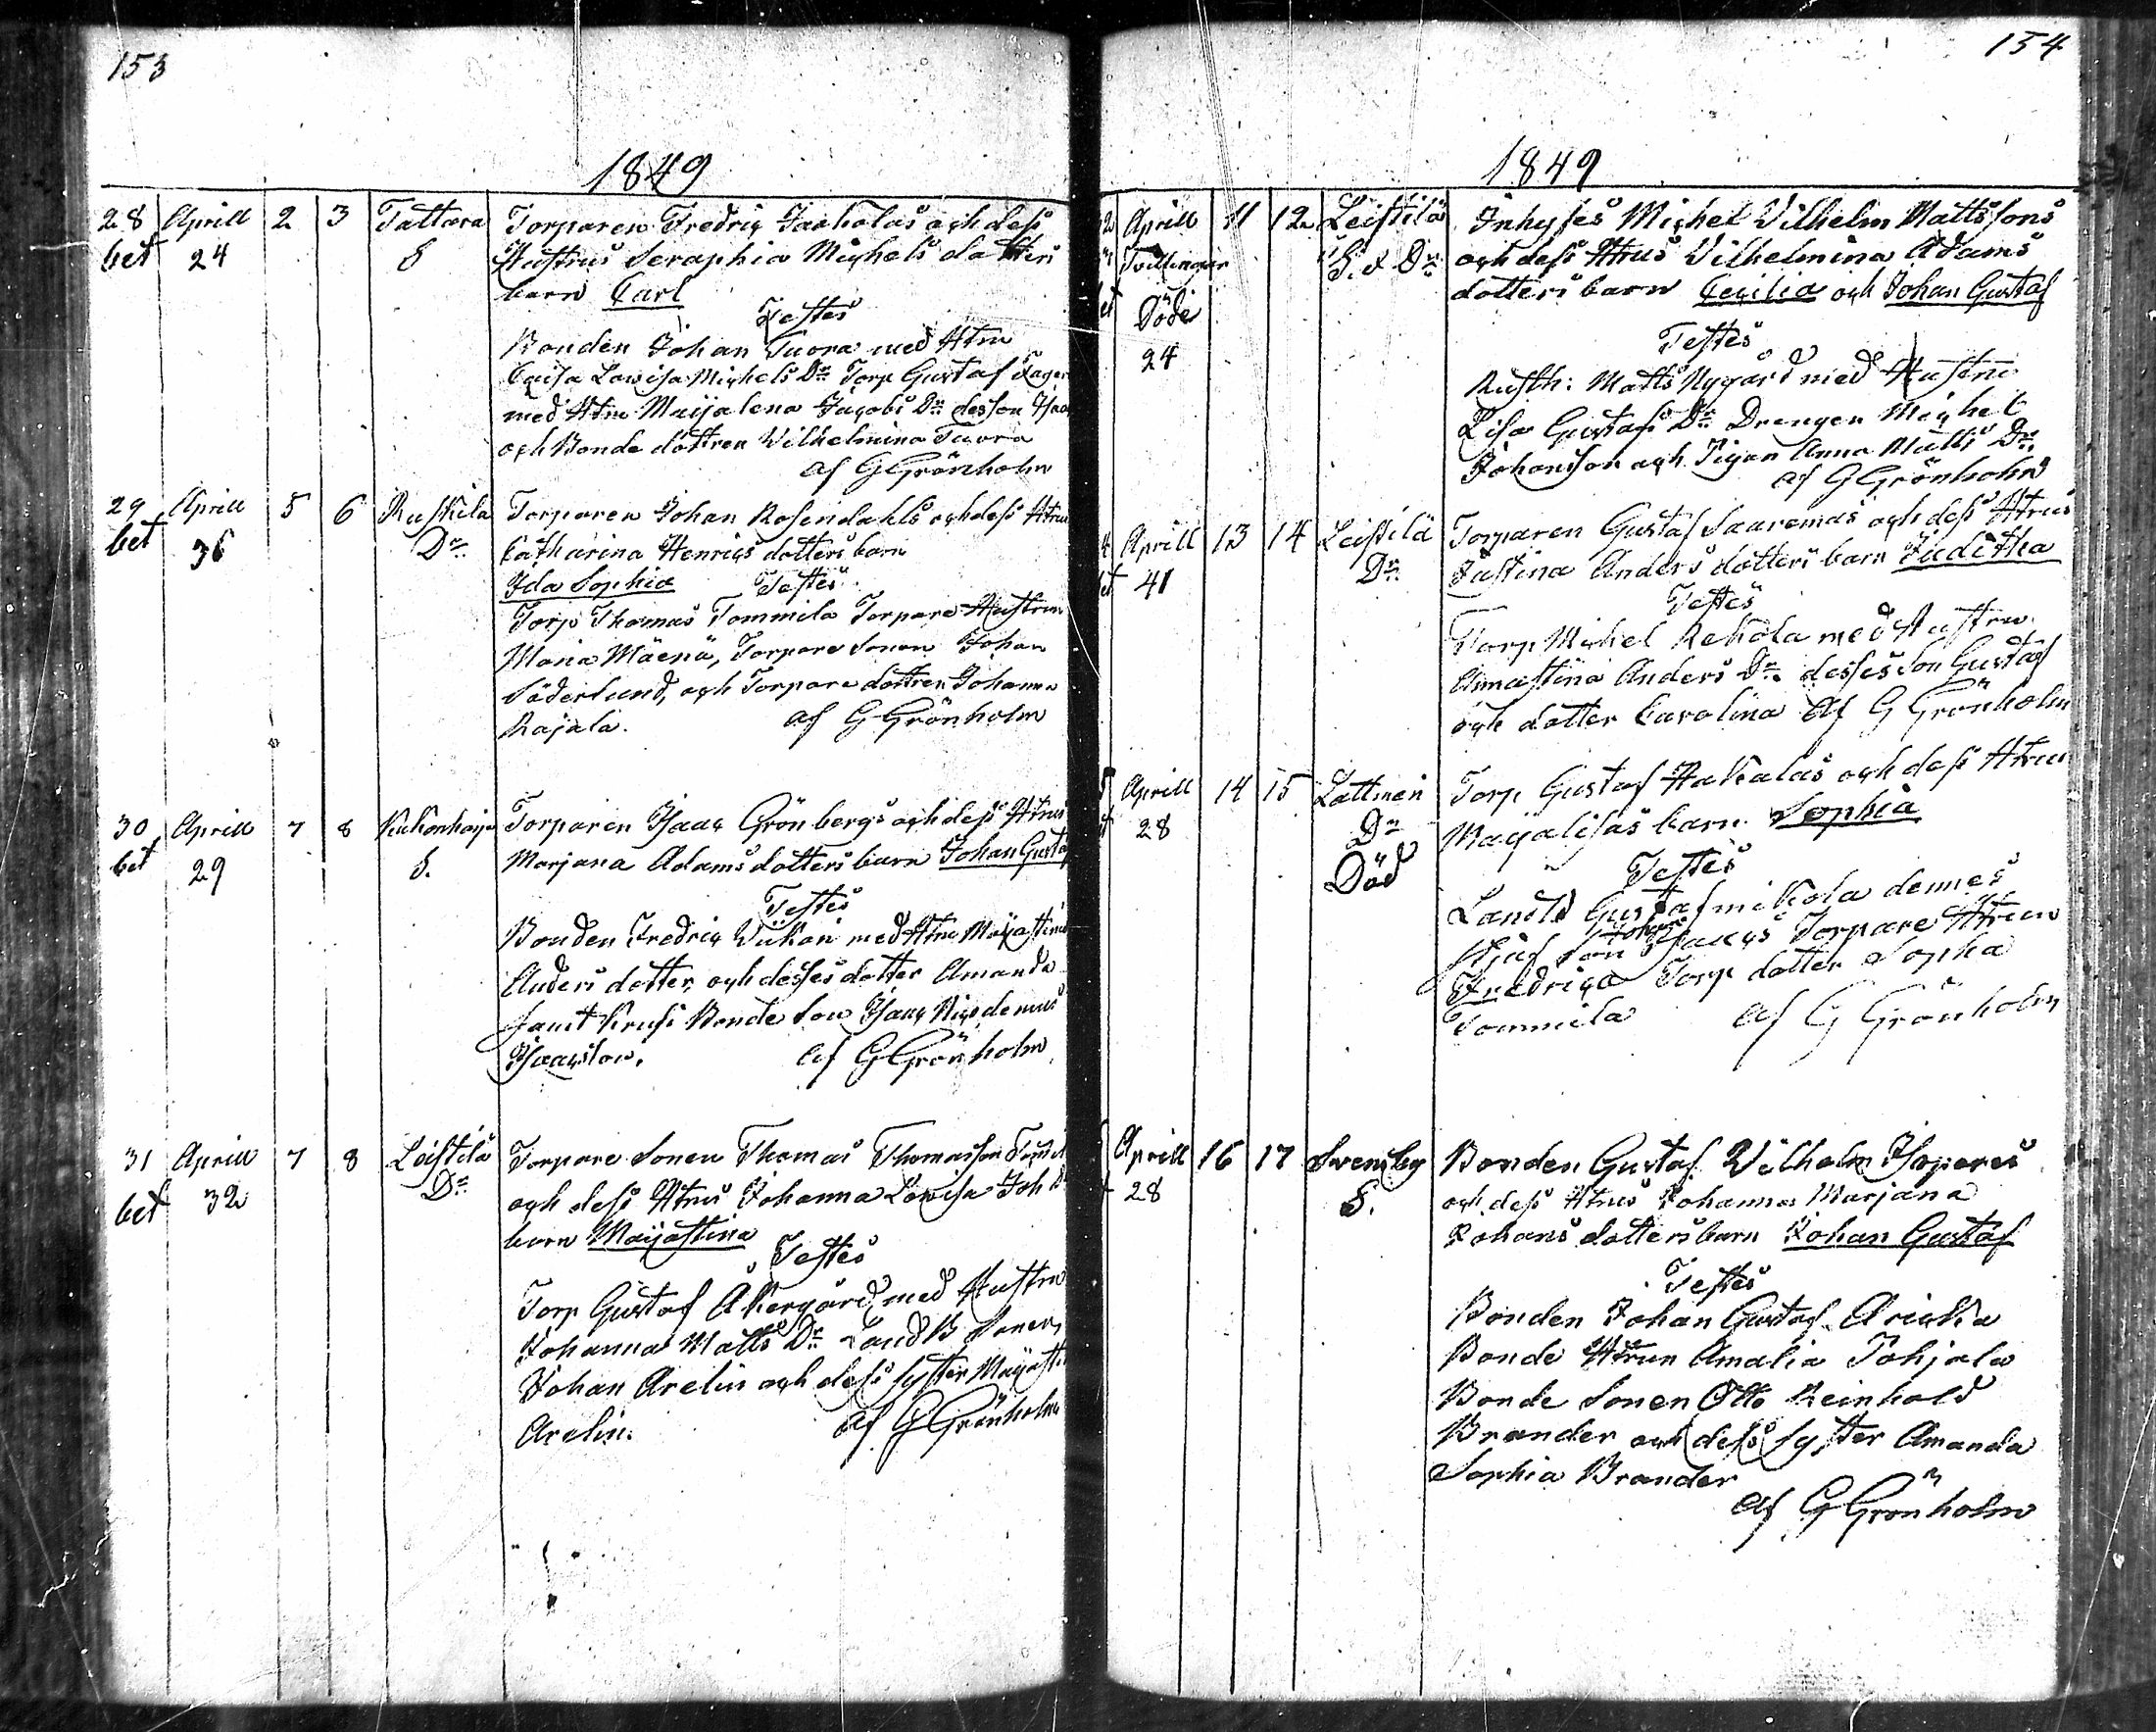 153
1849
28 Aprill 2 3 Tattara Torparen Fredric Jaakolas och dess
bet 24 S Hustrus Seraphia Michels dotters
barn Carl
Testes
Bonden Johan Tuora med Hrn
Caisa Lowisa Michels Dr Torp Gustaf
med Htru Maijalena Jacobs Dr desson
och Bonde dottren Wilhelmina Tuora
af G Grönholm
29 Aprill 5 6 Ruskila Torparen Johan Rosendahls och dess Htrus
bet 36 Dr. Catharina Henrics dotters barn
Ida Sophia Testes
Torp Thomas Tommila Torpare Hustrun
Maria Mäenä, Torpare Sonen Johan
Söderlund, och Torpare dottren Johanna
Rajala. af G Grönholm
30 Aprill 7 8 Torparen Isaac Grönbergs och dess Htrus
bet 29 S. Marjana Adams dotters barn Johan Gustaf
Testes
Bonden Fredric Wükari med Htru Maijastina
Anders dotter och desses dotter Amanda
samt Krusi Bonde Son Isaac Nicodemus
Isaacsson. af G Grönholm
31 Aprill 7 8 Leistilä Torpare Sonen Thomas Thomasson
bet 32 Dr. och dess Htrus Johanna Lowisa Joh Dr
barn Maijastina
Testes
Torp Gustaf Åkergård med Hustru
Johanna Matts Dr Landb Sonen
Johan Arelin och dess syster Maijastina
Arelin. af G Grönholm
154
1849
Aprill 11 12 Leistilä Inhyses Michel Vilhelm Mattssons
Tvillingar S. & Dr och dess Htrus Vilhelmina Adams
dotters barn Cecilia och Johan Gustaf
Döde
Testes
24
Rusth: Matts Nygård med Hustru
Lisa Gustafs Dr Drengen Michel
Johansson och Pigan Anna Matts Dr.
af G Grönholm
Aprill 13 14 Leistilä Torparen Gustaf Saaremas och dess Htrus
41 Dr. Justina Anders dotters barn Juditha
Testes
Torp Michel Rekola med Hustru
Annastina Anders Dr. desses Son Gustaf
och dotter Carolina af G Grönholm
Aprill 14 15 Lattmen Torp Gustaf Hakalas och dess Htrus
28 Dr Maijalisas barn Sophia
Död
Testes
Landtb Gustaf mikola dennes
Johan
Stjuf Son Isaacs Torpare Htrun
Fredrica Torp dotter Sopha
Tommila af G Grönholm
Aprill 16 17 Svensby Bonden Gustaf Wilhelm Isopares
28 S. och dess Htrus Johanna Marjana
Johans dotters barn Johan Gustaf
Testes
Bonden Johan Gustaf
Bonde Htrun Amalia Pohjala
Bonde Sonen Otto Reinhold
Brander och dess syster Amanda
Sophia Brander
af G Grönholm